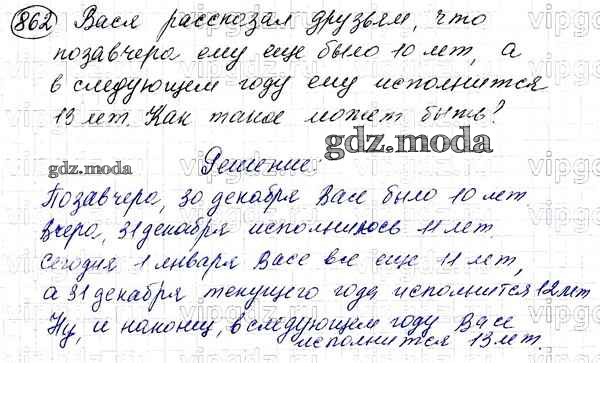 862 Вася рассказал друзьям, что
позавчера ему еще было 10 лет, а
в следующем году ему исполнится
13 лет. Как такое может быть?
gdz.moda
gdz.moda
Решение:
Позавчера, 30 декабря Васе было 10 лет
Вчера, 31 декабря исполнилось 11 лет.
Сегодня 1 января Васе все еще 11 лет,
а 31 декабря текущего года исполнится 12 лет
Ну, и наконец, в следующем году Васе
исполнится 13 лет.